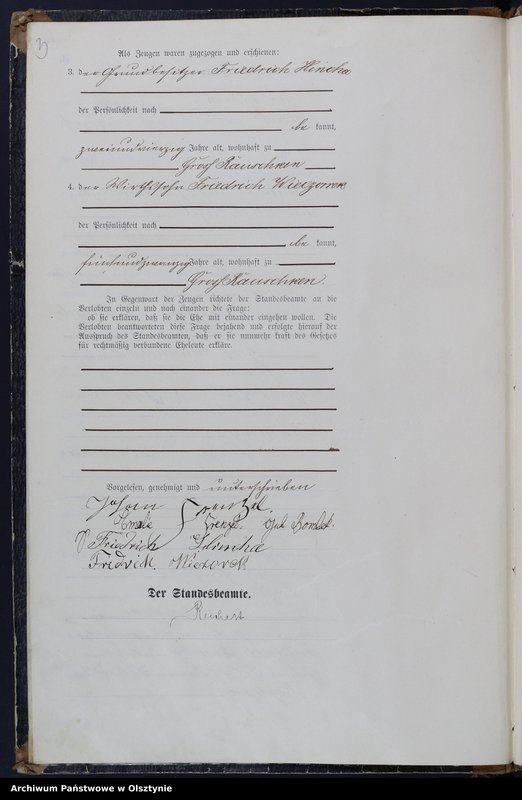 3
Als Zeugen waren zugezogen und erschienen:
3. der Grundbesitzer Friedrich Hincha
der Persönlichkeit nach
be kannt,
zweiundvierzig Jahre alt, wohnhaft zu
Groß Räuschken
4. der Wirthssohn Friedrich Wieczorrek
der Persönlichkeit nach
be kannt,
fünfundzwanzig Jahre alt, wohnhaft zu
Groß Räuschken.
In Gegenwart der Zeugen richtete der Standesbeamte an die
Verlobten einzeln und nach einander die Frage:
ob sie erklären, daß sie die Ehe mit einander eingehen wollen. Die
Verlobten beantworteten diese Frage bejahend und erfolgte hierauf der
Ausspruch des Standesbeamten, daß er sie nunmehr kraft des Gesetzes
für rechtmäßig verbundene Eheleute erkläre.
Vorgelesen, genehmigt und unterschrieben
Johann
Friedrich Hincha
Der Standesbeamte.
Archiwum Państwowe w Olsztynie